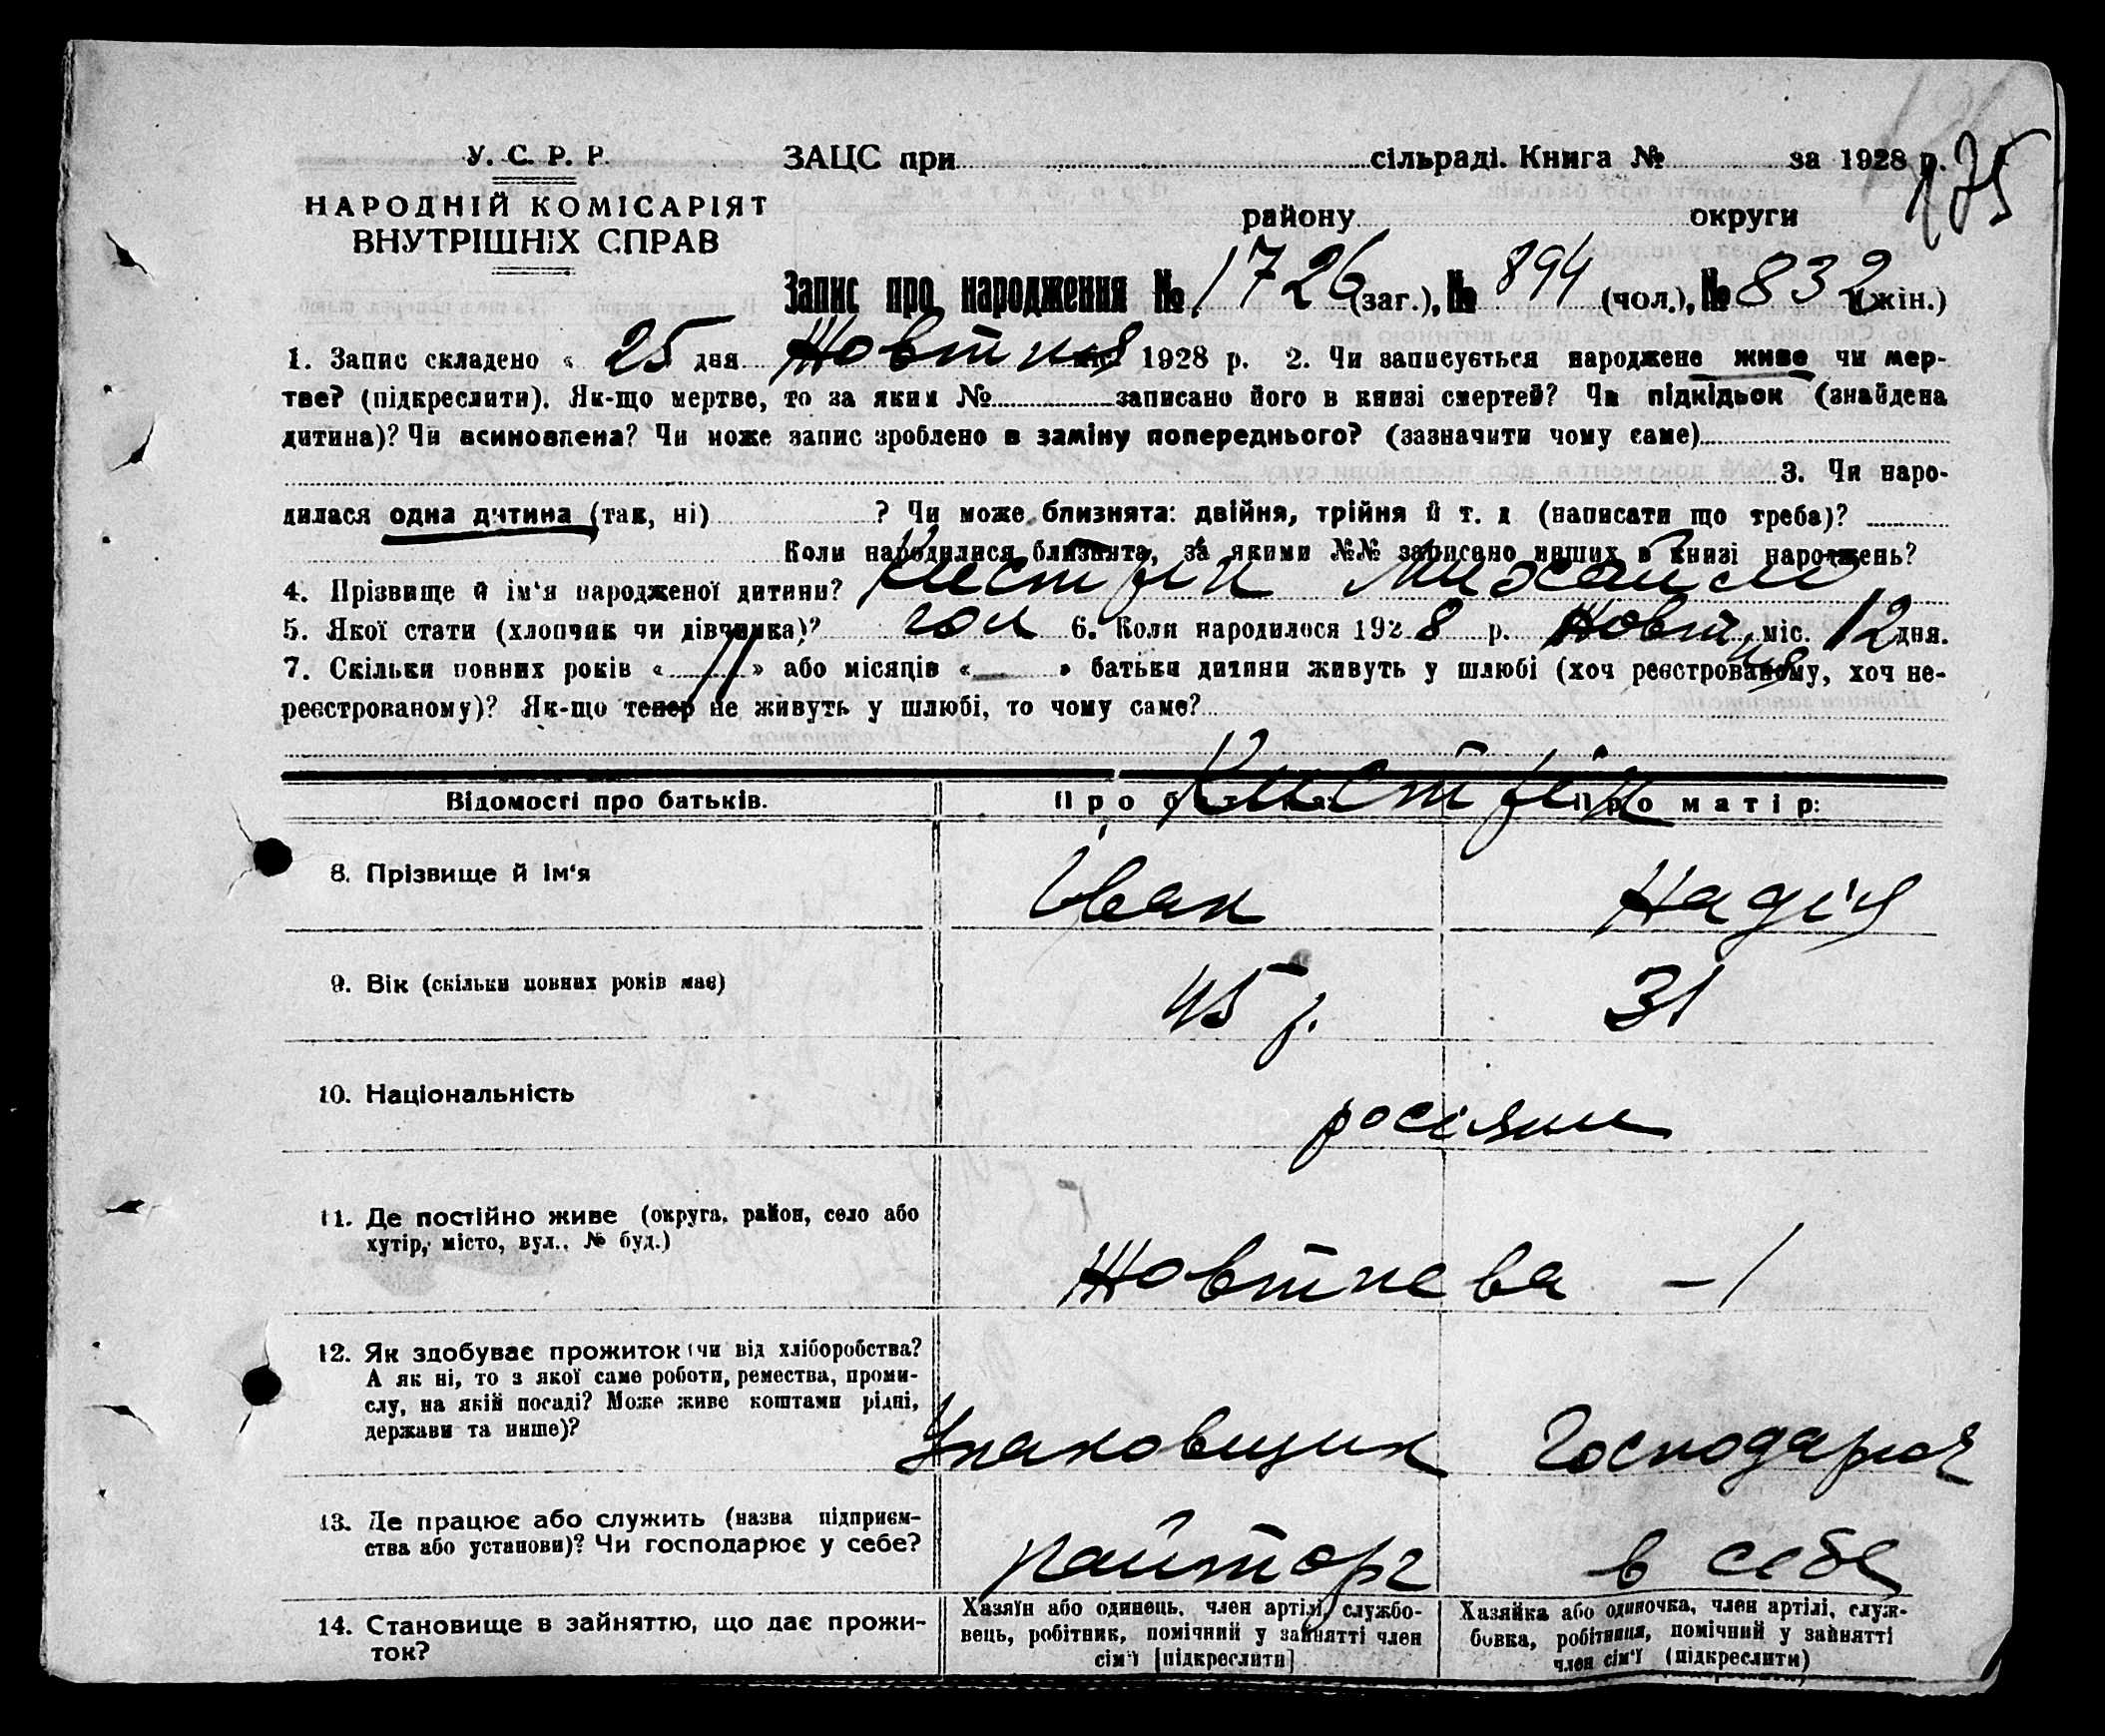 175
У. С. Р. Р.
НАРОДНІЙ КОМІСАРІЯТ
ВНУТРІШНІХ СПРАВ
ЗАЦС при сільраді. Книга № за 1928 р.
району округи
Запис про народження № 1726 (заг.), № 894 (чол.), № 832 (жін.)
1. Запис складено « 25 дня Жовтня 1928 р. 2. Чи записується народжене живе чи мер-
тве? (підкреслити). Як-що мертве, то за яким № записано його в книзі смертей? Чи підкідьок (знайдена
дитина)? Чи всиновлена? Чи може запис зроблено в заміну попереднього? (зазначити чому саме)
3. Чи наро-
дилася одна дитина (так, ні) ? Чи може близнята: двійня, трійня й т. д (написати що треба)?
Коли народилися близнята, за якими №№ записано инших в книзі народжень?
4. Прізвище й ім'я народженої дитини? Михаил
5. Якої стати (хлопчик чи дівчинка)? чол 6. Коли народилося 1928 р. Жовтня міс. 12 дня.
7. Скільки повних років « 11 » або місяців « — » батьки дитини живуть у шлюбі (хоч реєстрованому, хоч не-
реєстрованому)? Як-що тепер не живуть у шлюбі, то чому саме?
Відомості про батьків. Про батька: Про матір:
8. Прізвище й ім'я Іван Надія
9. Вік (скільки повних років має) 45 р. 31
10. Національність росіяни
11. Де постійно живе (округа, район, село або
хутір, місто, вул., № буд.) Жовтнева – 1
12. Як здобуває прожиток (чи від хліборобства?
А як ні, то з якої саме роботи, ремества, проми-
слу, на якій посаді? Може живе коштами рідні,
держави та инше)? Упаковщик Господарює
13. Де працює або служить (назва підприєм-
ства або установи)? Чи господарює у себе? райторг в себе
14. Становище в зайняттю, що дає прожи-
ток?
Хазяїн або одинець, член артілі, службо-
вець, робітник, помічний у зайнятті член
сім'ї [підкреслити]
Хазяйка або одиночка, член артілі, служ-
бовка, робітниця, помічний у зайнятті
член сім'ї (підкреслити)